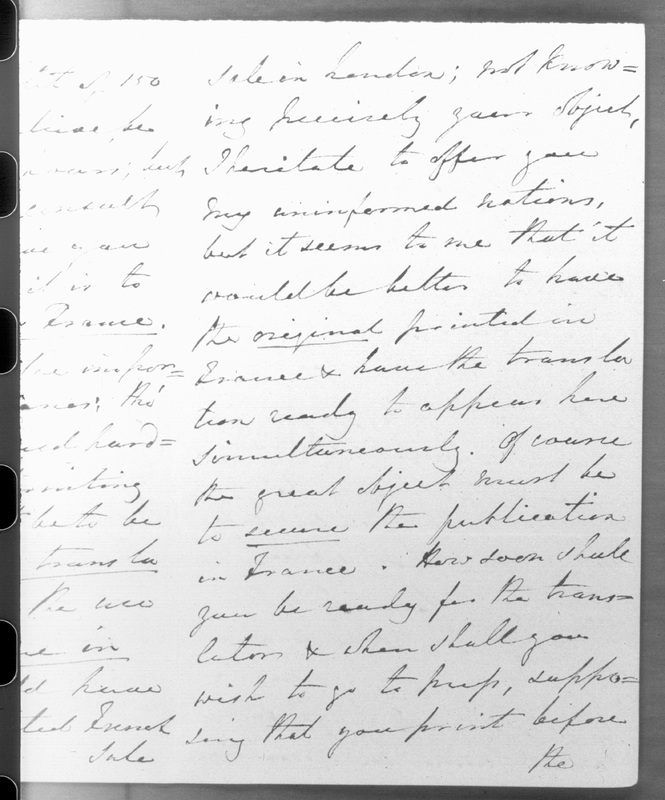 tit of 150
be
but
consult
you
it is to
France.
the impor=
tho'
hard=
printing
to be
transla
the
in
have
French
Sale
sale in London; not know=
ing precisely your object,
I hesitate to offer you
my uninformed notions,
but it seems to me that it
would be better to have
the original printed in
France & have the transla
tion ready to appear here
simultaneously. Of course
the great object must be
to secure the publication
in France. How soon shall
you be ready for the trans=
lators & when shall you
wish to go to press, suppo=
sing that you print before
the